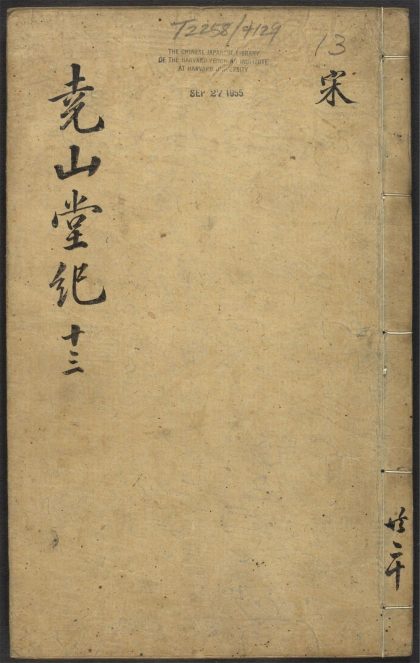 T2258/4129
13
THE CHINESE-JAPANESE LIBRARY
OF THE HARVARD-YENCHING INSTITUTE
AT HARVARD UNIVERSITY
SEP 27 1955
宋
共二十
尭山堂紀 十三